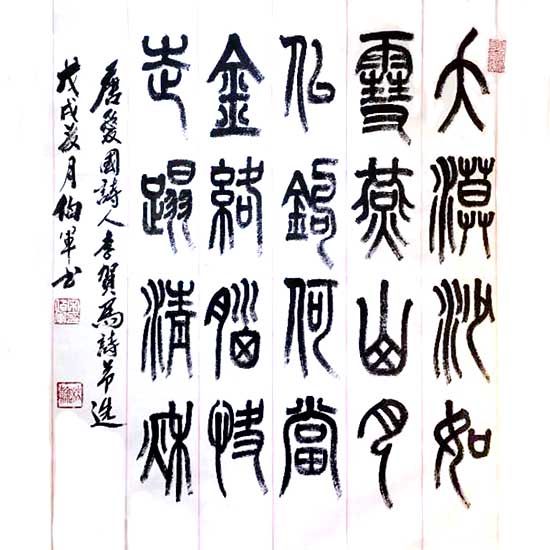 大漠沙如
雪燕山月
似鉤何當
金絡腦快
走蹋清秋
唐愛國詩人李賀馬詩節選
戊戌菊月伯軍書